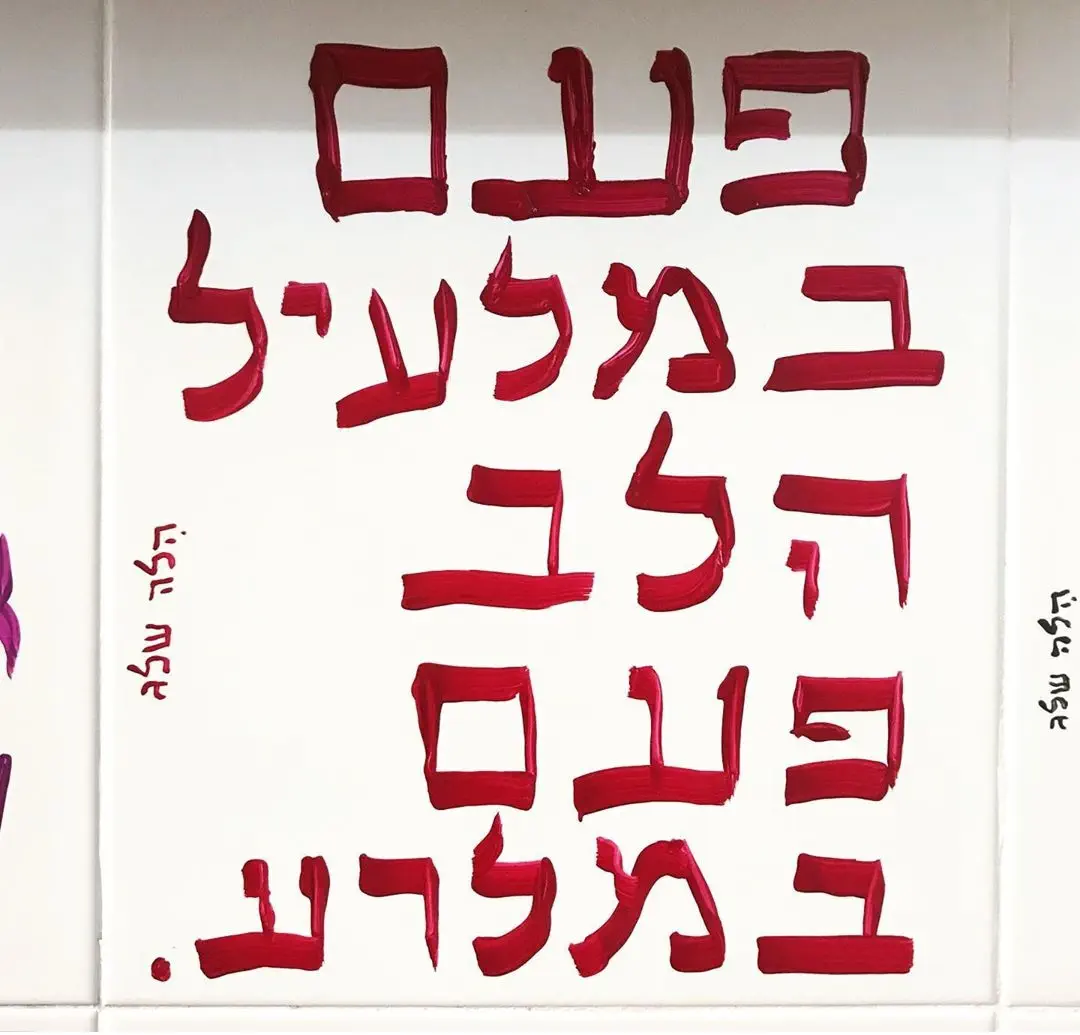 פעם
במלעיל
הלב
פעם
במלרע.
הלה שלג
הלה שלג